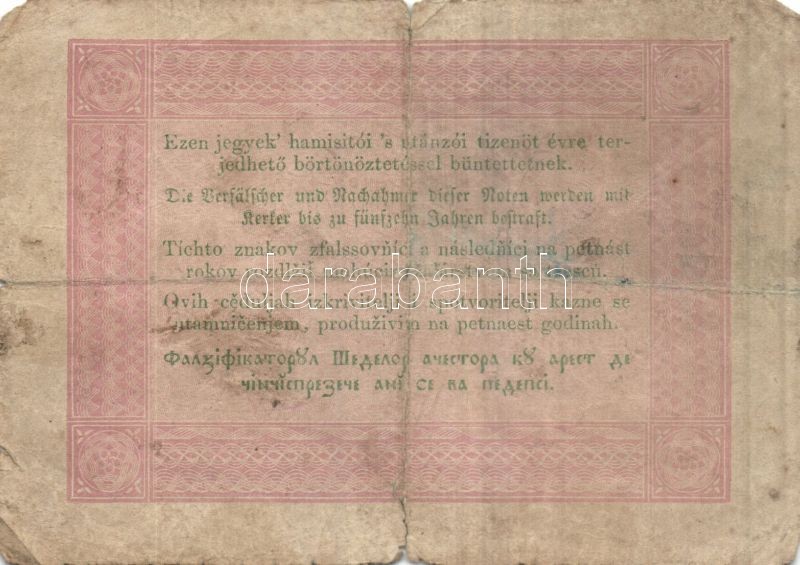 Ezen jegyek' hamisitói 's utánzói tizenöt évre ter-
jedhető börtönöztetéssel büntettetnek.
Die Verfälscher und Nachahmer dieser Noten werden mit
Kerker bis zu fünfzehn Jahren bestraft.
Tíchto znakov zfalssovňíci a následňíci na petnást
rokov
darabanth
Ovih cěduljah izkrivitelji spatvoritelji kazne se
utamničenjem, produživim na petnaest godinah.
Фалзіфікаторꙋл Шеделор ачестора кꙋ арест де
чінчіспрезече ані се ва педепсі.